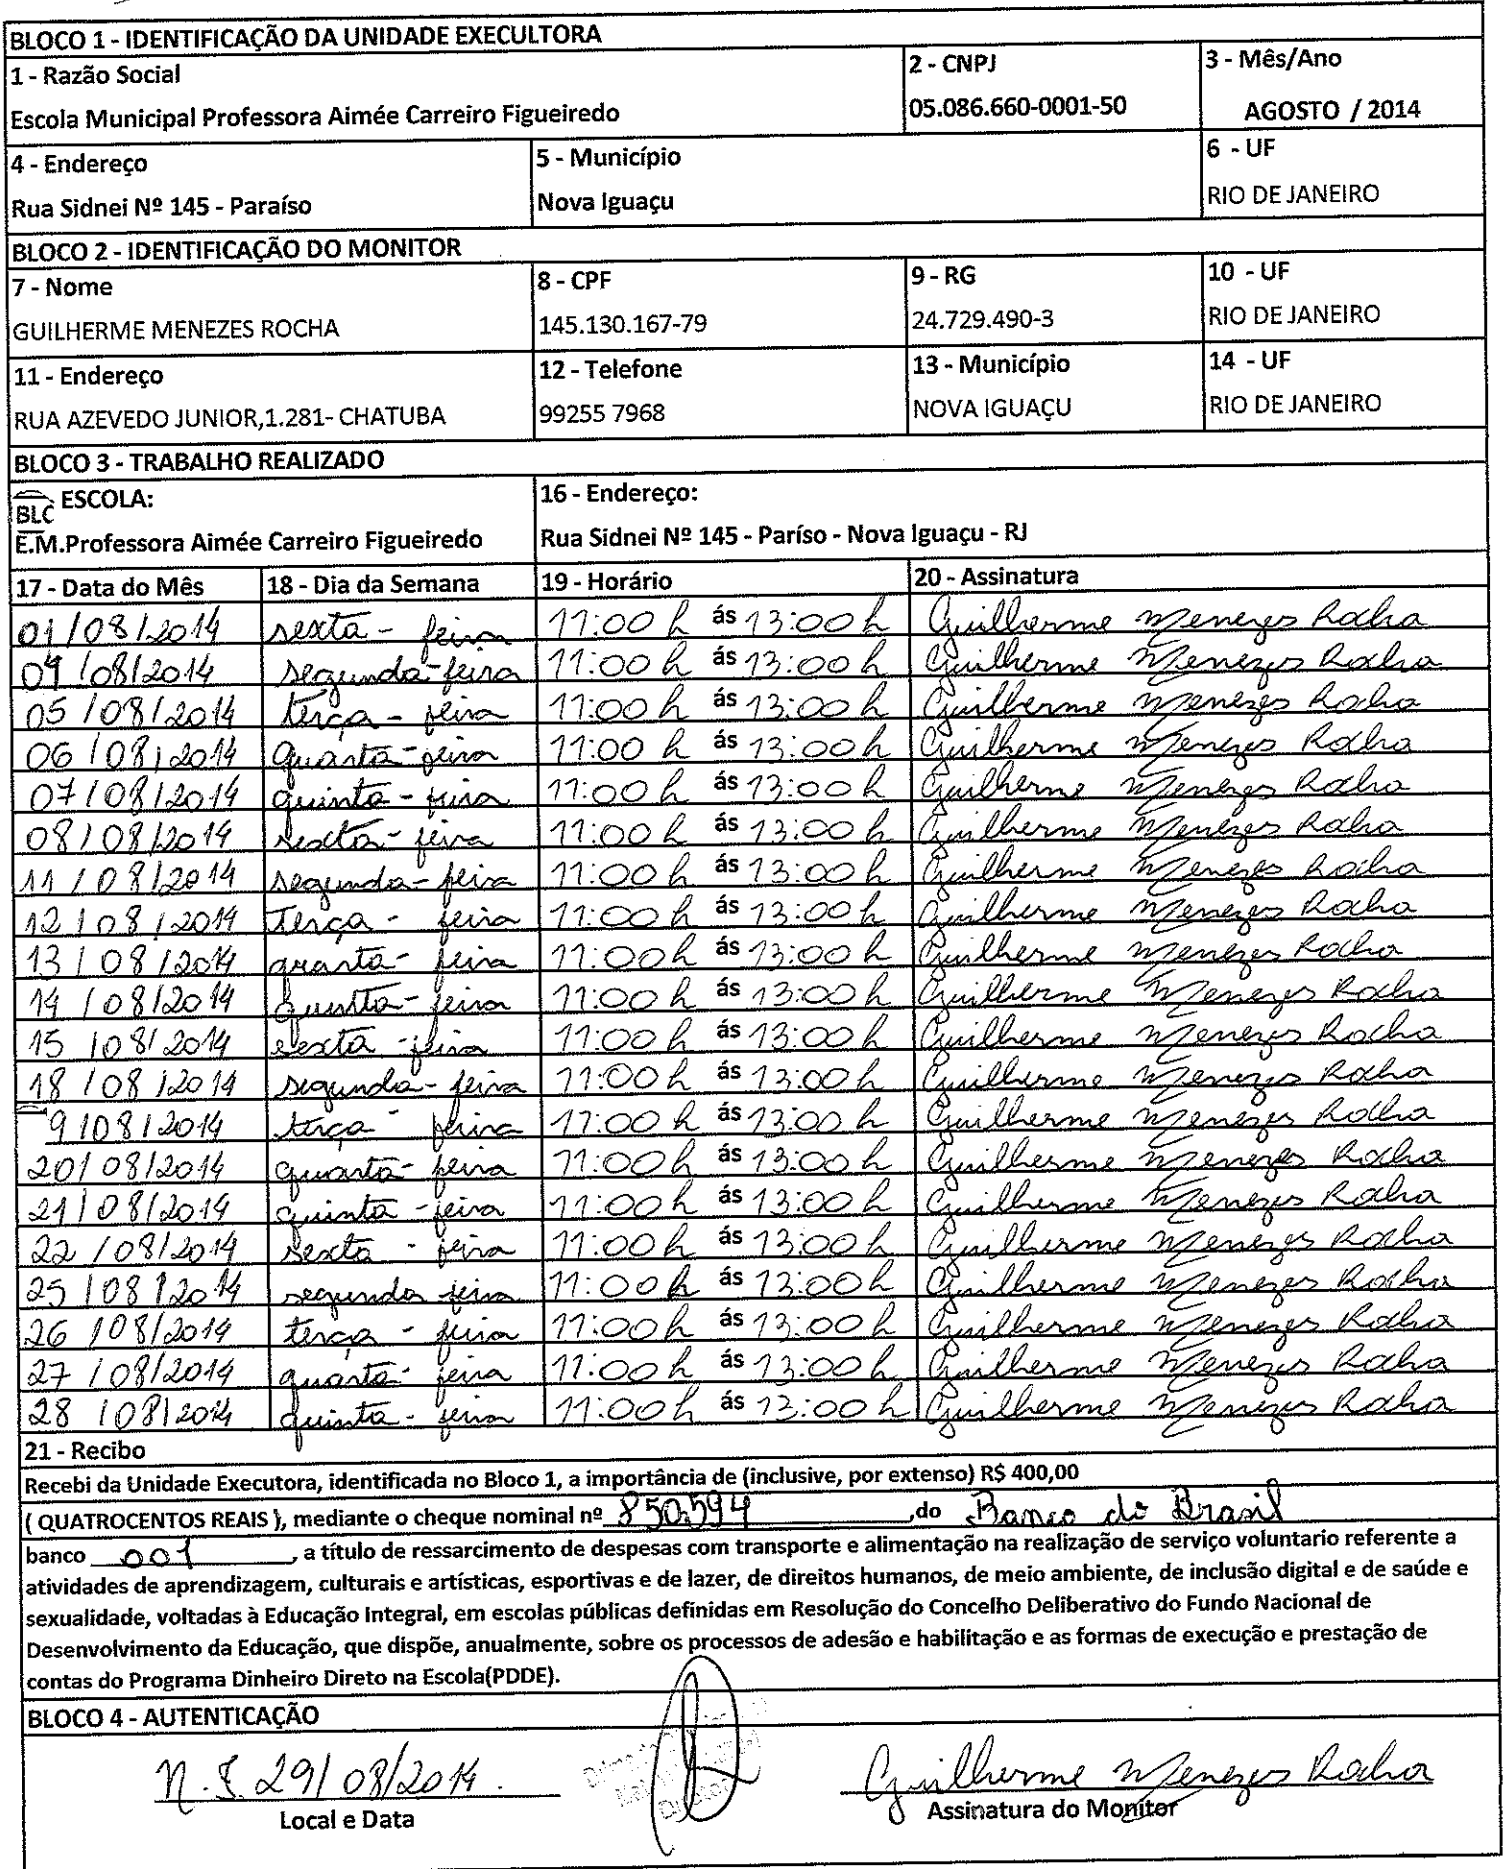 BLOCO 1 - IDENTIFICAÇÃO DA UNIDADE EXECULTORA
1 - Razão Social 2 - CNPJ 3 - Mês/Ano
Escola Municipal Professora Aimée Carreiro Figueiredo 05.086.660-0001-50 AGOSTO / 2014
4 - Endereço 5 - Município 6 - UF
Rua Sidnei Nº 145 - Paraíso Nova Iguaçu RIO DE JANEIRO
BLOCO 2 - IDENTIFICAÇÃO DO MONITOR
7 - Nome 8 - CPF 9 - RG 10 - UF
GUILHERME MENEZES ROCHA 145.130.167-79 24.729.490-3 RIO DE JANEIRO
11 - Endereço 12 - Telefone 13 - Município 14 - UF
RUA AZEVEDO JUNIOR,1.281- CHATUBA 99255 7968 NOVA IGUAÇU RIO DE JANEIRO
BLOCO 3 - TRABALHO REALIZADO
BLC ESCOLA: 16 - Endereço:
E.M.Professora Aimée Carreiro Figueiredo Rua Sidnei Nº 145 - Paríso - Nova Iguaçu - RJ
17 - Data do Mês 18 - Dia da Semana 19 - Horário 20 - Assinatura
01/08/2014 sexta - feira 11:00 h ás 13:00 h Guilherme Menezes Rocha
04/08/2014 segunda-feira 11:00 h ás 13:00 h Guilherme Menezes Rocha
05/08/2014 terça - feira 11:00 h ás 13:00 h Guilherme Menezes Rocha
06/08/2014 quarta-feira 11:00 h ás 13:00 h Guilherme Menezes Rocha
07/08/2014 quinta-feira 11:00 h ás 13:00 h Guilherme Menezes Rocha
08/08/2014 sexta-feira 11:00 h ás 13:00 h Guilherme Menezes Rocha
11/08/2014 segunda-feira 11:00 h ás 13:00 h Guilherme Menezes Rocha
12/08/2014 Terça - feira 11:00 h ás 13:00 h Guilherme Menezes Rocha
13/08/2014 quarta- feira 11:00 h ás 13:00 h Guilherme Menezes Rocha
14/08/2014 quinta-feira 11:00 h ás 13:00 h Guilherme Menezes Rocha
15/08/2014 sexta -feira 11:00 h ás 13:00 h Guilherme Menezes Rocha
18/08/2014 segunda-feira 11:00 h ás 13:00 h Guilherme Menezes Rocha
9/08/2014 terça - feira 11:00 h ás 13:00 h Guilherme Menezes Rocha
20/08/2014 quarta- feira 11:00 h ás 13:00 h Guilherme Menezes Rocha
21/08/2014 quinta -feira 11:00 h ás 13:00 h Guilherme Menezes Rocha
22/08/2014 sexta - feira 11:00 h ás 13:00 h Guilherme Menezes Rocha
25/08/2014 segunda feira 11:00 h ás 13:00 h Guilherme Menezes Rocha
26/08/2014 terça - feira 11:00 h ás 13:00 h Guilherme Menezes Rocha
27/08/2014 quarta- feira 11:00 h ás 13:00 h Guilherme Menezes Rocha
28/08/2014 quinta- feira 11:00 h ás 13:00 h Guilherme Menezes Rocha
21 - Recibo
Recebi da Unidade Executora, identificada no Bloco 1, a importância de (inclusive, por extenso) R$ 400,00
( QUATROCENTOS REAIS ), mediante o cheque nominal nº 850.594 ,do Banco do Brasil
banco 001 , a título de ressarcimento de despesas com transporte e alimentação na realização de serviço voluntario referente a
atividades de aprendizagem, culturais e artísticas, esportivas e de lazer, de direitos humanos, de meio ambiente, de inclusão digital e de saúde e
sexualidade, voltadas à Educação Integral, em escolas públicas definidas em Resolução do Concelho Deliberativo do Fundo Nacional de
Desenvolvimento da Educação, que dispõe, anualmente, sobre os processos de adesão e habilitação e as formas de execução e prestação de
contas do Programa Dinheiro Direto na Escola(PDDE).
BLOCO 4 - AUTENTICAÇÃO
N. I. 29/08/2014. Guilherme Menezes Rocha
Local e Data Assinatura do Monitor